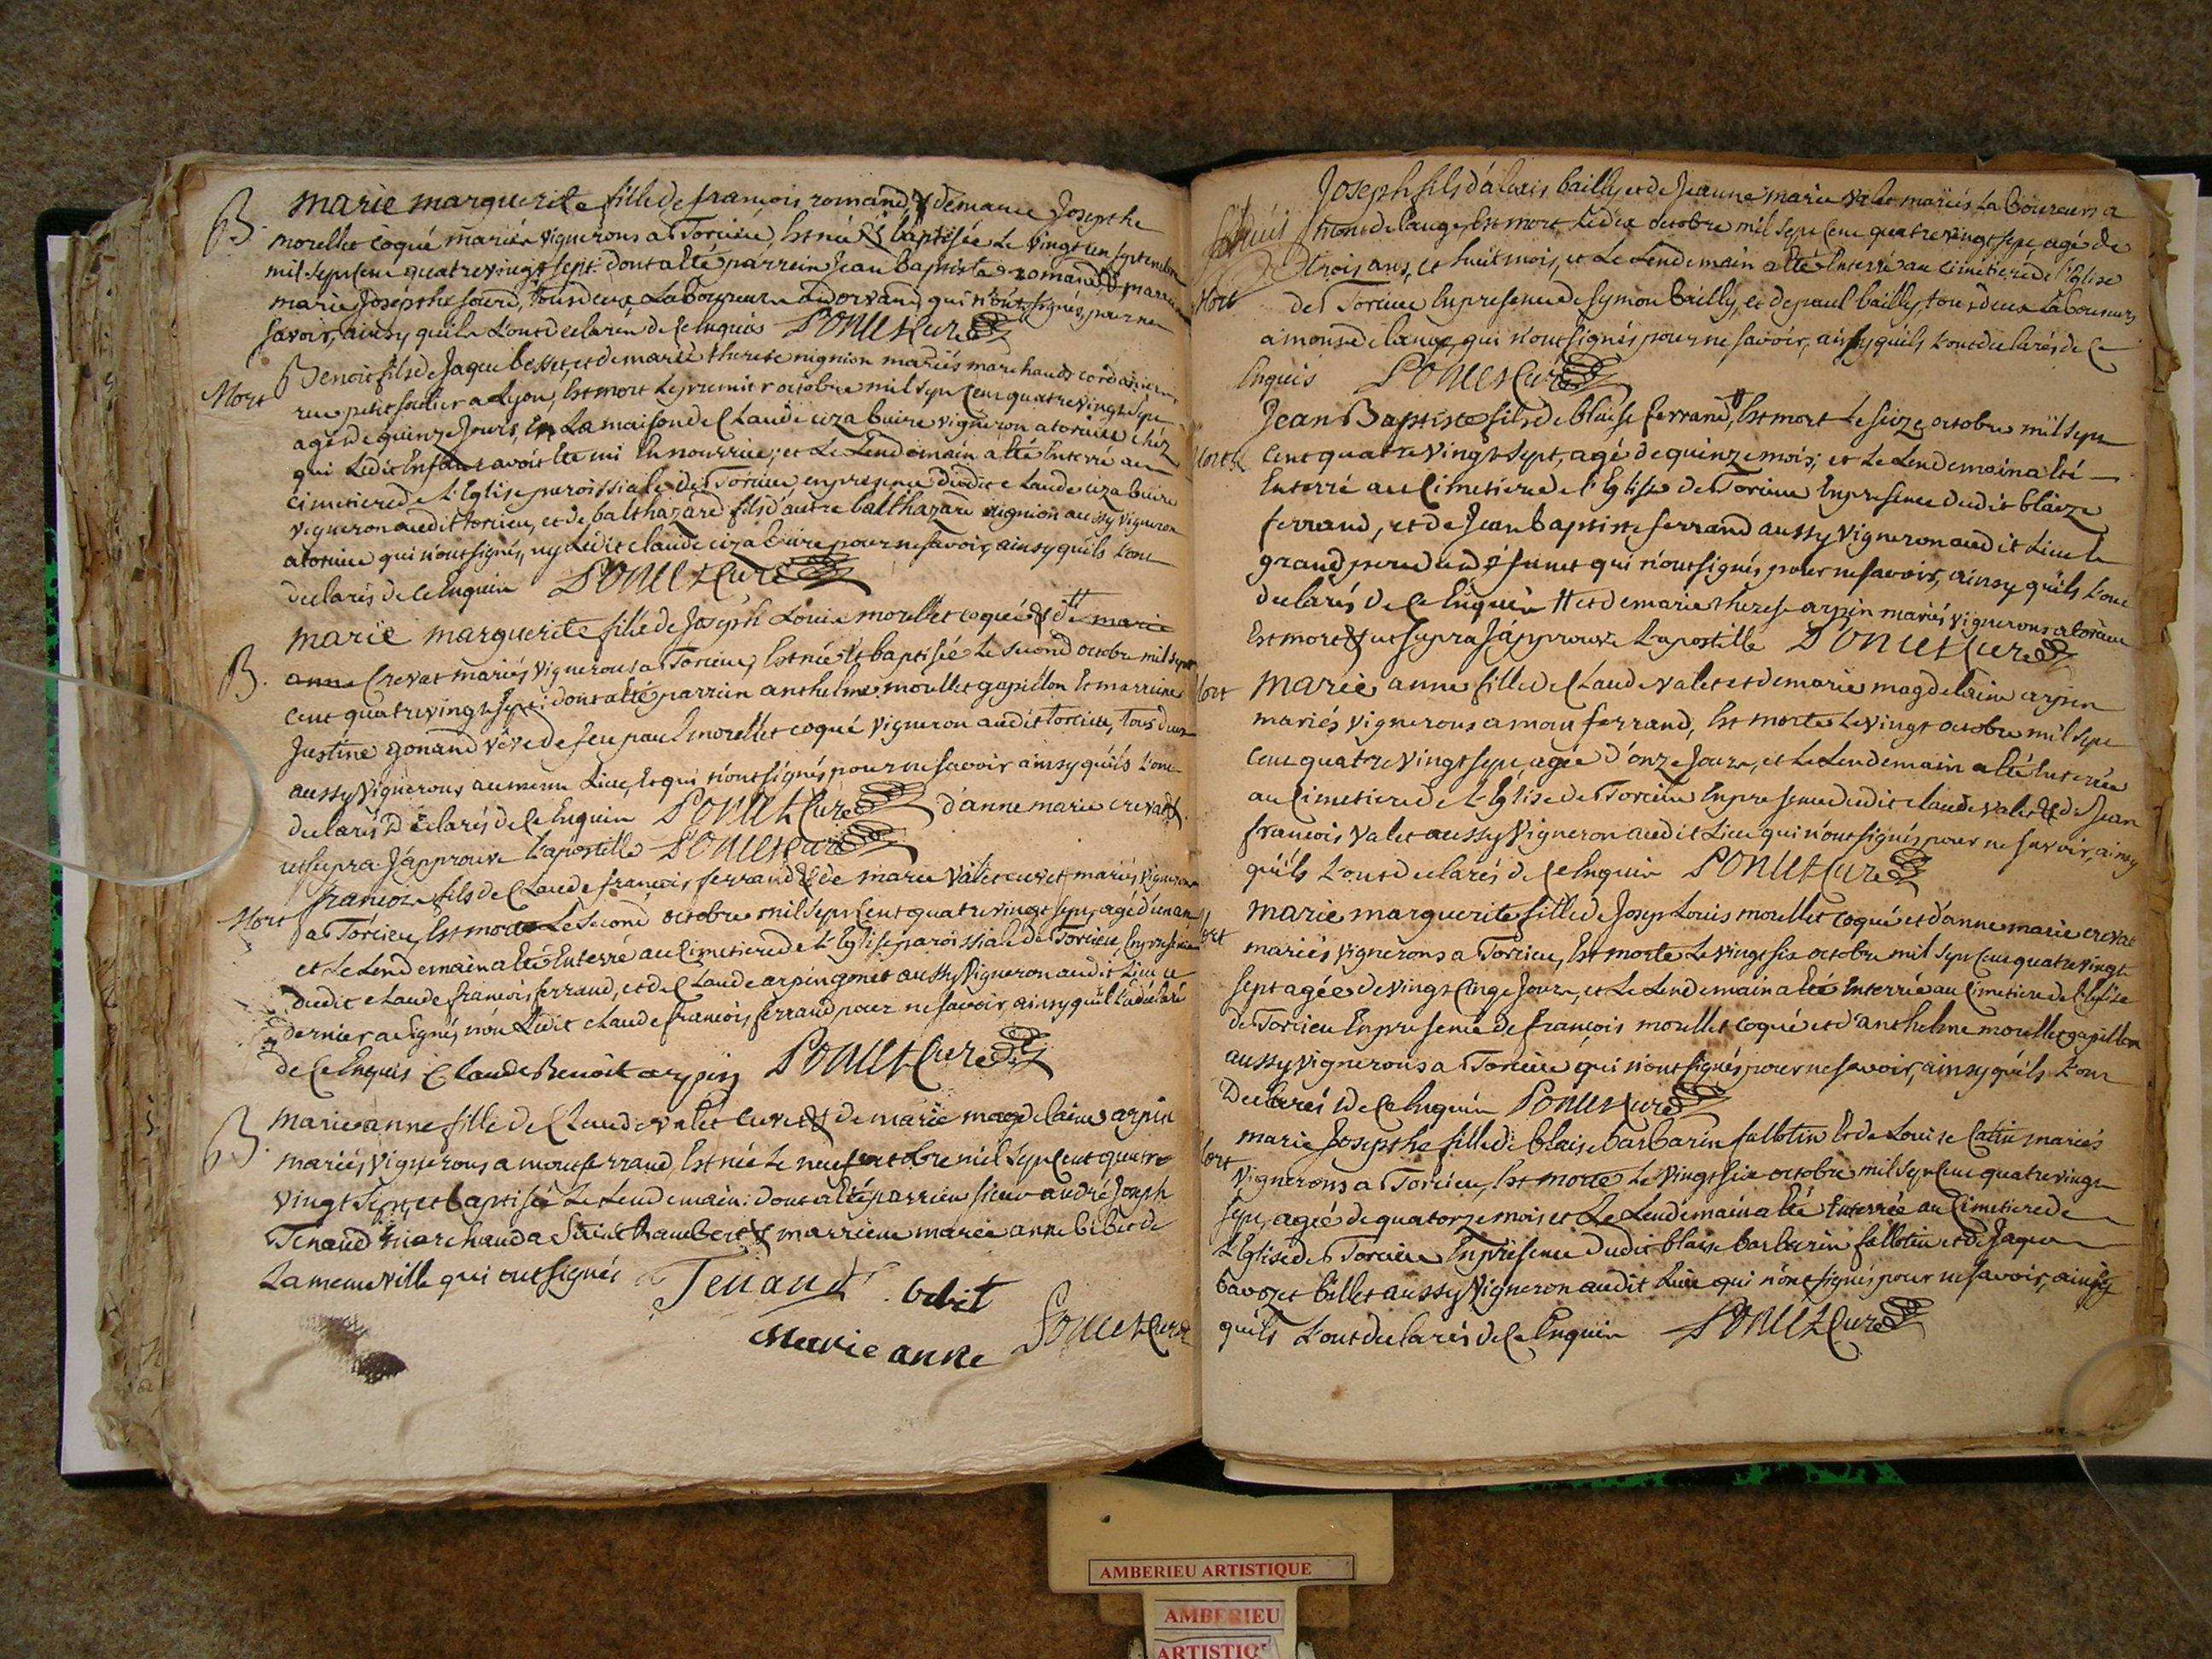 B. marie marguerite fille de françois romand & de marie Josepthe
morellet coqué mariés vignerons a Torcieu, Est née & baptisée Le vingt un septembre
mil sept Cent quatre vingt sept: dont a été parrein Jean baptiste romand, & marreine
marie Josepthe tous deux Laboureurs qui n'ont signés, pour ne
savoir, ainsy quils L'ont declarés de Ce Enquis Ponut Curé
Benoit fils de Jaque besset, et de marie therese mignion mariés marchands cordonniers
Mort rue petit soulier a Lyon, Est mort Le premier octobre mil sept Cent quatre vingt sept
agé de quinze Jours, En La maison de Claude ciza buire vigneron a torcieu chez
qui Ledit Enfant avoit été mi En nourrice; et Le Lendemain a été Enterré au
cimetiere de L'Eglise paroissiale de Torcieu en presence dudit Claude ciza buire
vigneron audit torcieu, et de balthazard fils d'autre balthazard mignion aussy vigneron
a torcieu qui n'ont signés, ny Ledit claude ciza buire pour ne savoir, ainsy quils L'ont
declarés de Ce Enquis Ponut Curé
marie marguerite fille de Joseph Louis morellet coqué & dtt marie
B. anne Crevat mariés vignerons a Torcieu, Est née & baptisée Le second octobre mil sept
Cent quatre vingt sept: dont a été parrein anthelme morellet gapillon Et marreine
Justine gonand vêve de feu paul morellet coqué vigneron audit torcieu, tous deux
aussy vignerons au meme Lieu, Et qui n'ont signés pour ne savoir ainsy quils L'ont
declarés Declarés de Ce Enquis Ponut Curé d'anne marie crevat &
ut supra. J'approuve L'apostille Ponut Curé
françois fils de Claude françois ferrand & de marie valet cuvet mariés, vignerons
Mort a Torcieu, Est mort Le second octobre mil sept Cent quatre vingt sept, agé d'un an
et Le Lendemain a été Enterré au Cimetiere de L'Eglise paroissiale de Torcieu, En presence
dudit Claude françois ferrand, et de Claude arpin gonet aussy vigneron audit Lieu ce
dernier a signé, non Ledit claude francois ferrand pour ne savoir, ainsy quil L'a déclaré
de Ce Enquis Claude Benoit arpin Ponut Curé
marie anne fille de Claude valet cuvet & de marie magdelaine arpin
B. mariés, vignerons a montferrand, Est née Le neuf octobre mil sept Cent quatre
vingt sept, et baptisée Le Lendemain: dont a été parrein sieur andré Joseph
Tenand marchand a Saint Rambert & marreine marie anne bibet de
La meme ville qui ont signés Tenand bibet
Marie anne Ponut Curé
Joseph fils d'alexis bailly et de Jeanne marie valet mariés Laboureurs a
mont de lange, Est mort Le dix octobre mil sept Cent quatre vingt sept, agé de
trois ans, et huit mois, et Le Lendemain a été Enterré au cimetiere de l'Eglise
Mort de Torcieu En presence de symon bailly, et de paul bailly, tous deux Laboureurs
a mont de lange, qui n'ont signés pour ne savoir, ainsy quils L'ont declarés de Ce
Enquis Ponut Curé
Jean Baptiste fils de blaise ferrand, tt Est mort Le seize octobre mil sept
Mort Cent quatre vingt sept, agé de quinze mois; et Le Lendemain a été
Enterré au Cimetiere de l'Eglise de Torcieu En presence dudit blaize
ferrand, et de Jean baptiste ferrand aussy vigneron audit Lieu le
grand pere du défunct qui n'ont signés pour ne savoir, ainsy quils L'ont
declarés de Ce Enquis tt et de marie therese arpin mariés vignerons a torcieu
Est mort & ut supra J'approuve L'apostille Ponut Curé
Mort marie anne fille de Claude valet et de marie magdelaine arpin
mariés vignerons a mont ferrand, Est morte Le vingt octobre mil sept
Cent quatre vingt sept, agée d'onze Jours, et Le Lendemain a été Enterrée
au Cimetiere de L'Eglise de Torcieu En presence dudit claude valet & de Jean
francois valet aussy vigneron audit Lieu qui n'ont signés pour ne savoir, ainsy
quils L'ont declarés de Ce Enquis Ponut Curé
marie marguerite fille de Josep Louis morellet coqué et d'anne marie crevat
Mort mariés vignerons a Torcieu, Est morte Le vingt six octobre mil sept Cent quatre vingt
sept agée de vingt Cinqe Jours, et Le Lendemain a été Enterrée au Cimetiere de l'Eglise
de Torcieu En presence de françois morellet coqué et d'anthelme morellet gapillon
aussy vignerons a Torcieu qui n'ont signés, pour ne savoir, ainsy quils L'ont
Declarés de Ce Enquis Ponut Curé
marie Josepthe fille de blaise barbarin fallotin & de Louise Catin mariés
Mort vignerons a Torcieu, Est morte Le vingt six octobre mil sept Cent quatre vingt
sept, agée de quatorze mois et Le Lendemain a été Enterrée au Cimetiere de
L'Eglise de Torcieu En presence dudit blaise barbarin fallotin et de Jaque
bavozet billet aussy vigneron audit Lieu qui n'ont signés pour ne savoir, ainsy
quils L'ont declarés de Ce Enquis Ponut Curé
AMBERIEU ARTISTIQUE
AMBERIEU
ARTISTIQU